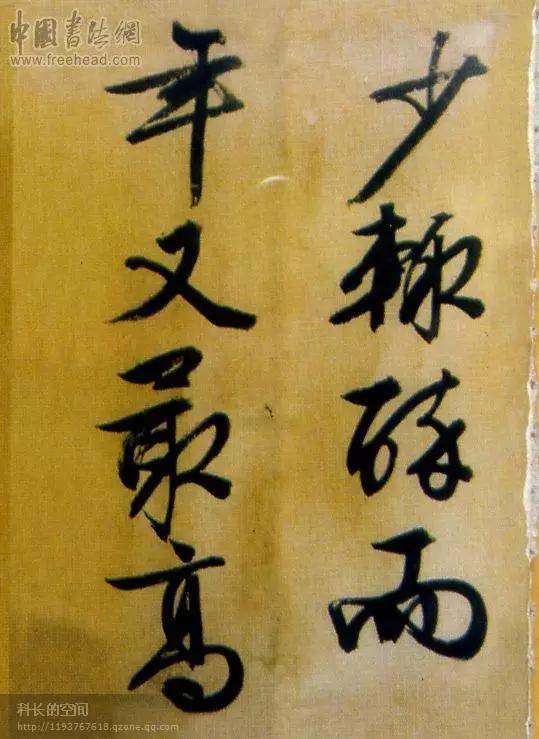 中國書法網
www.freehead.com
少輙醉而
年又最高
科长的空间
http://1193767618.qzone.qq.com